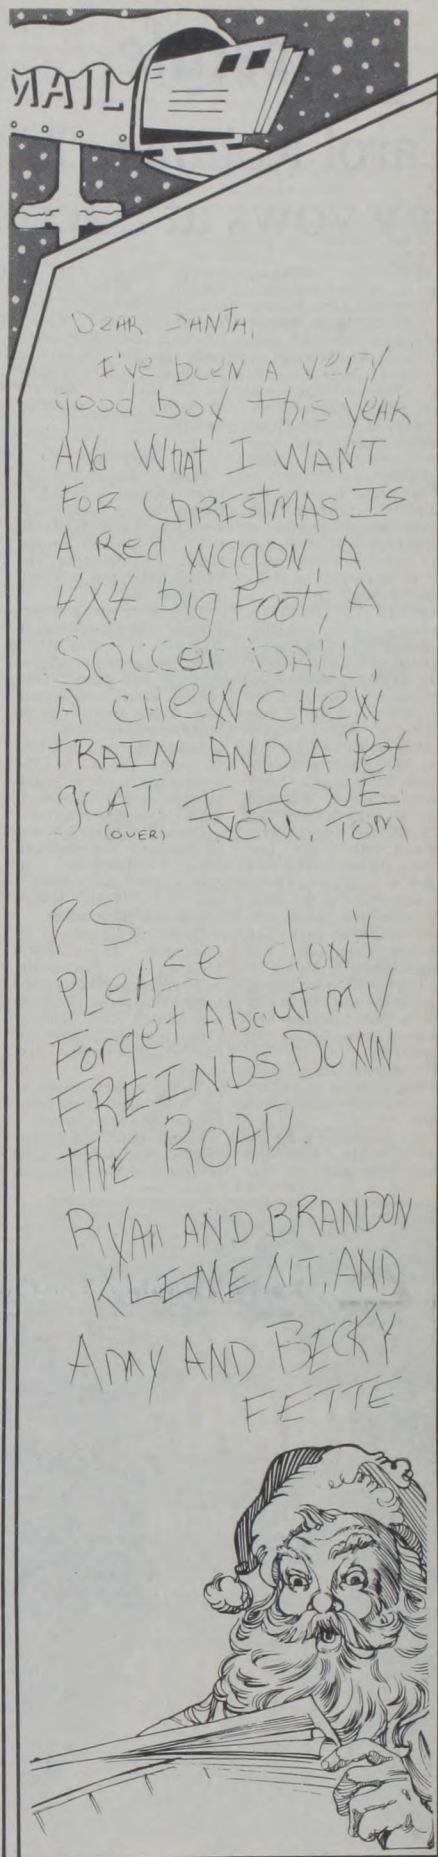 MAIL
DEAR SANTA,
I've been A very
good boy this yeAR
ANd What I WANT
FOR CHRISTMAS IS
A Red wagON, A
4X4 big Foot, A
SOCCer BALL,
A CHeW CHeW
tRAIN AND A Pet
gOAT. I LOVE
(OVER) YOU, TOM
PS.
PLeASe don't
Forget About my
FREINDS DOWN
THE ROAD.
RYAn AND BRANDON
KLEMENT, AND
Amy AND BECKY
FETTE